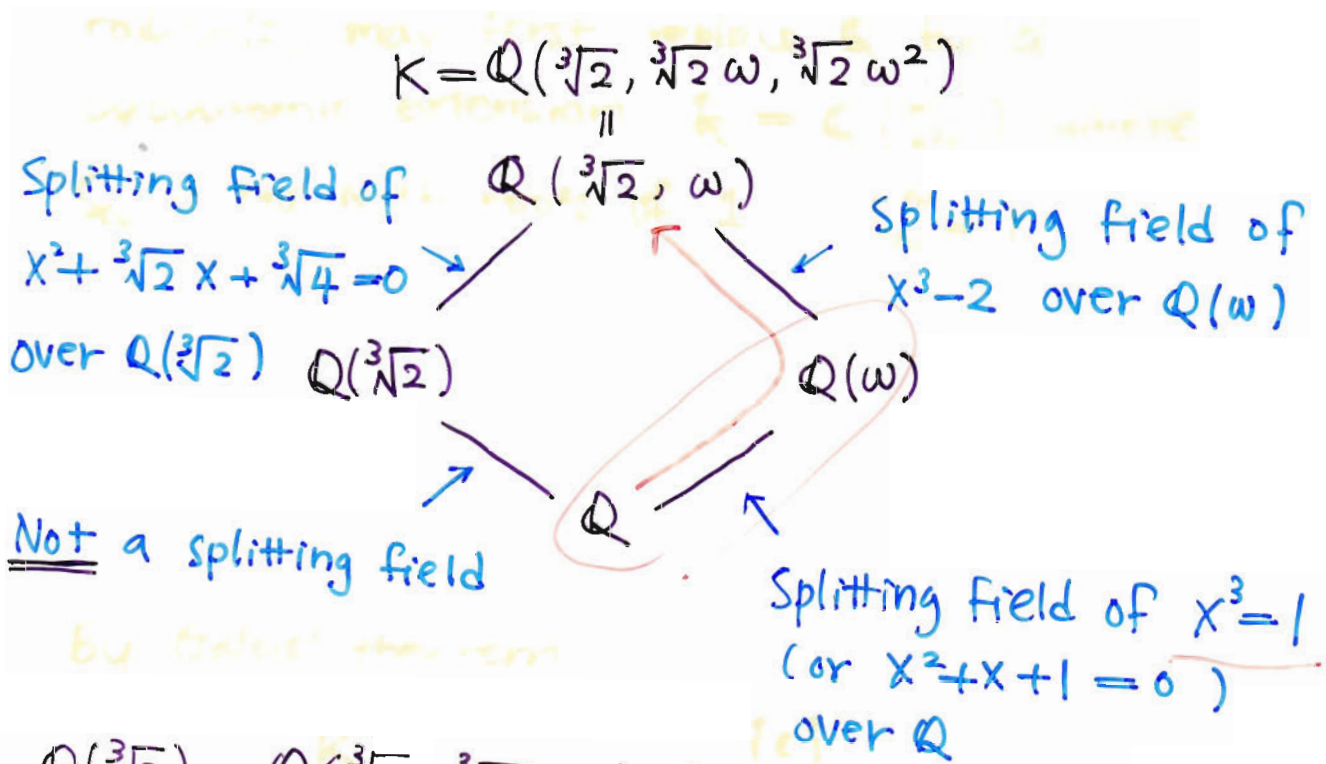 K = Q(∛2, ∛2 ω, ∛2 ω²)
=
Q(∛2, ω)
Splitting field of
x² + ∛2 x + ∛4 = 0
over Q(∛2)
Splitting field of
x³ − 2 over Q(ω)
Q(∛2)
Q(ω)
Q
Not a splitting field
Splitting field of x³ = 1
(or x² + x + 1 = 0)
over Q